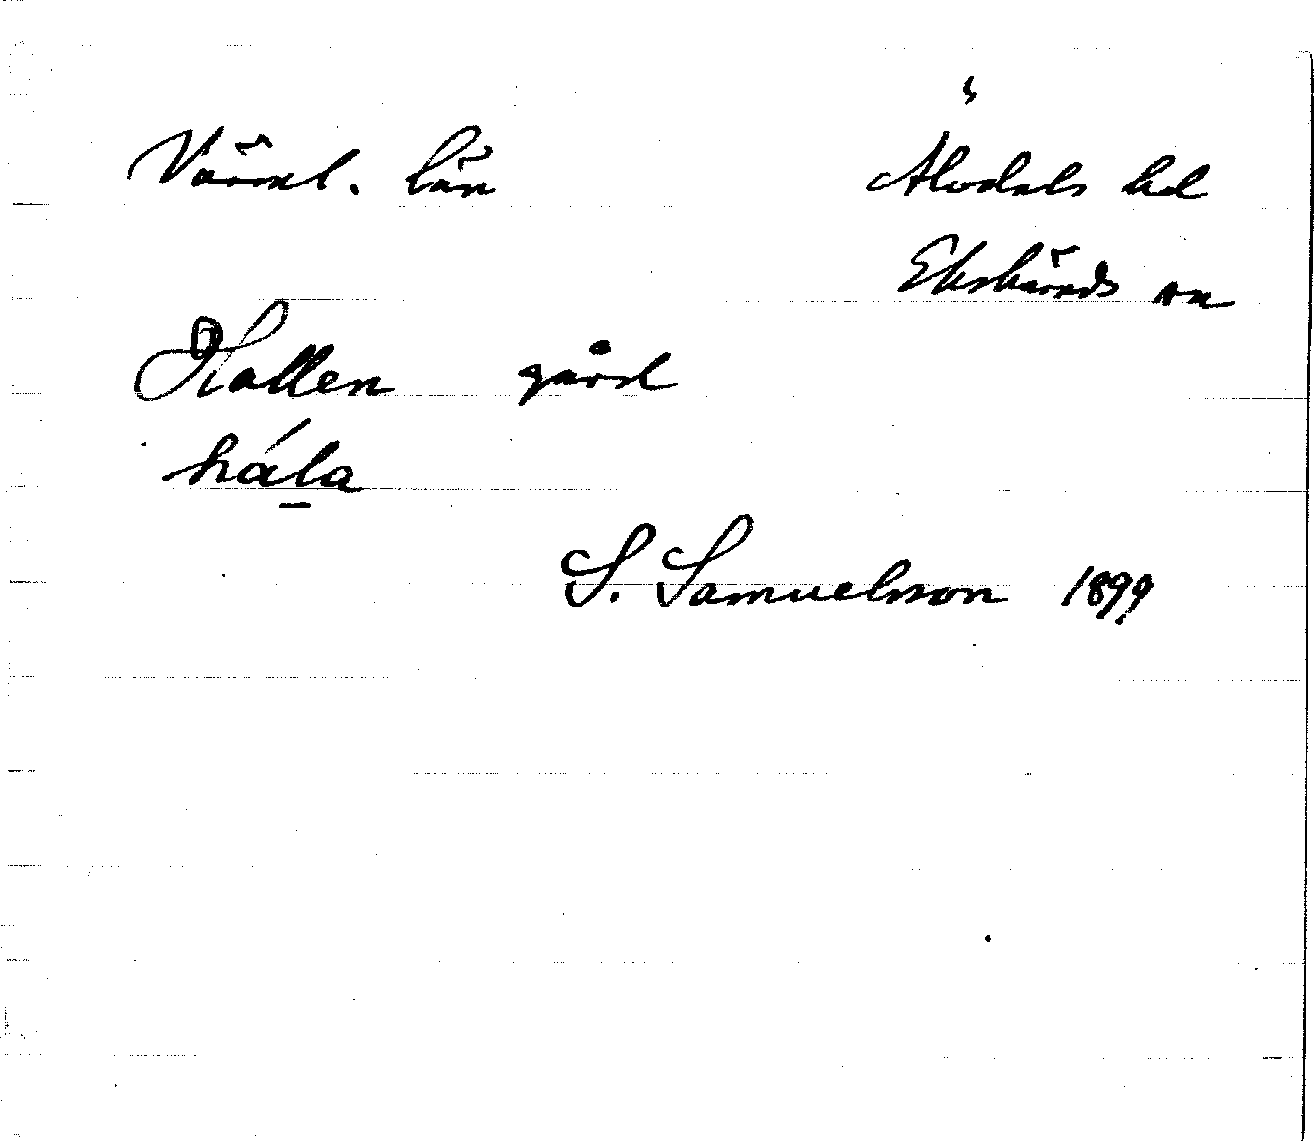 Värml. län
Älvdals hd
Ekshärads sn
Hallen gård
hála
S. Samuelsson 1899